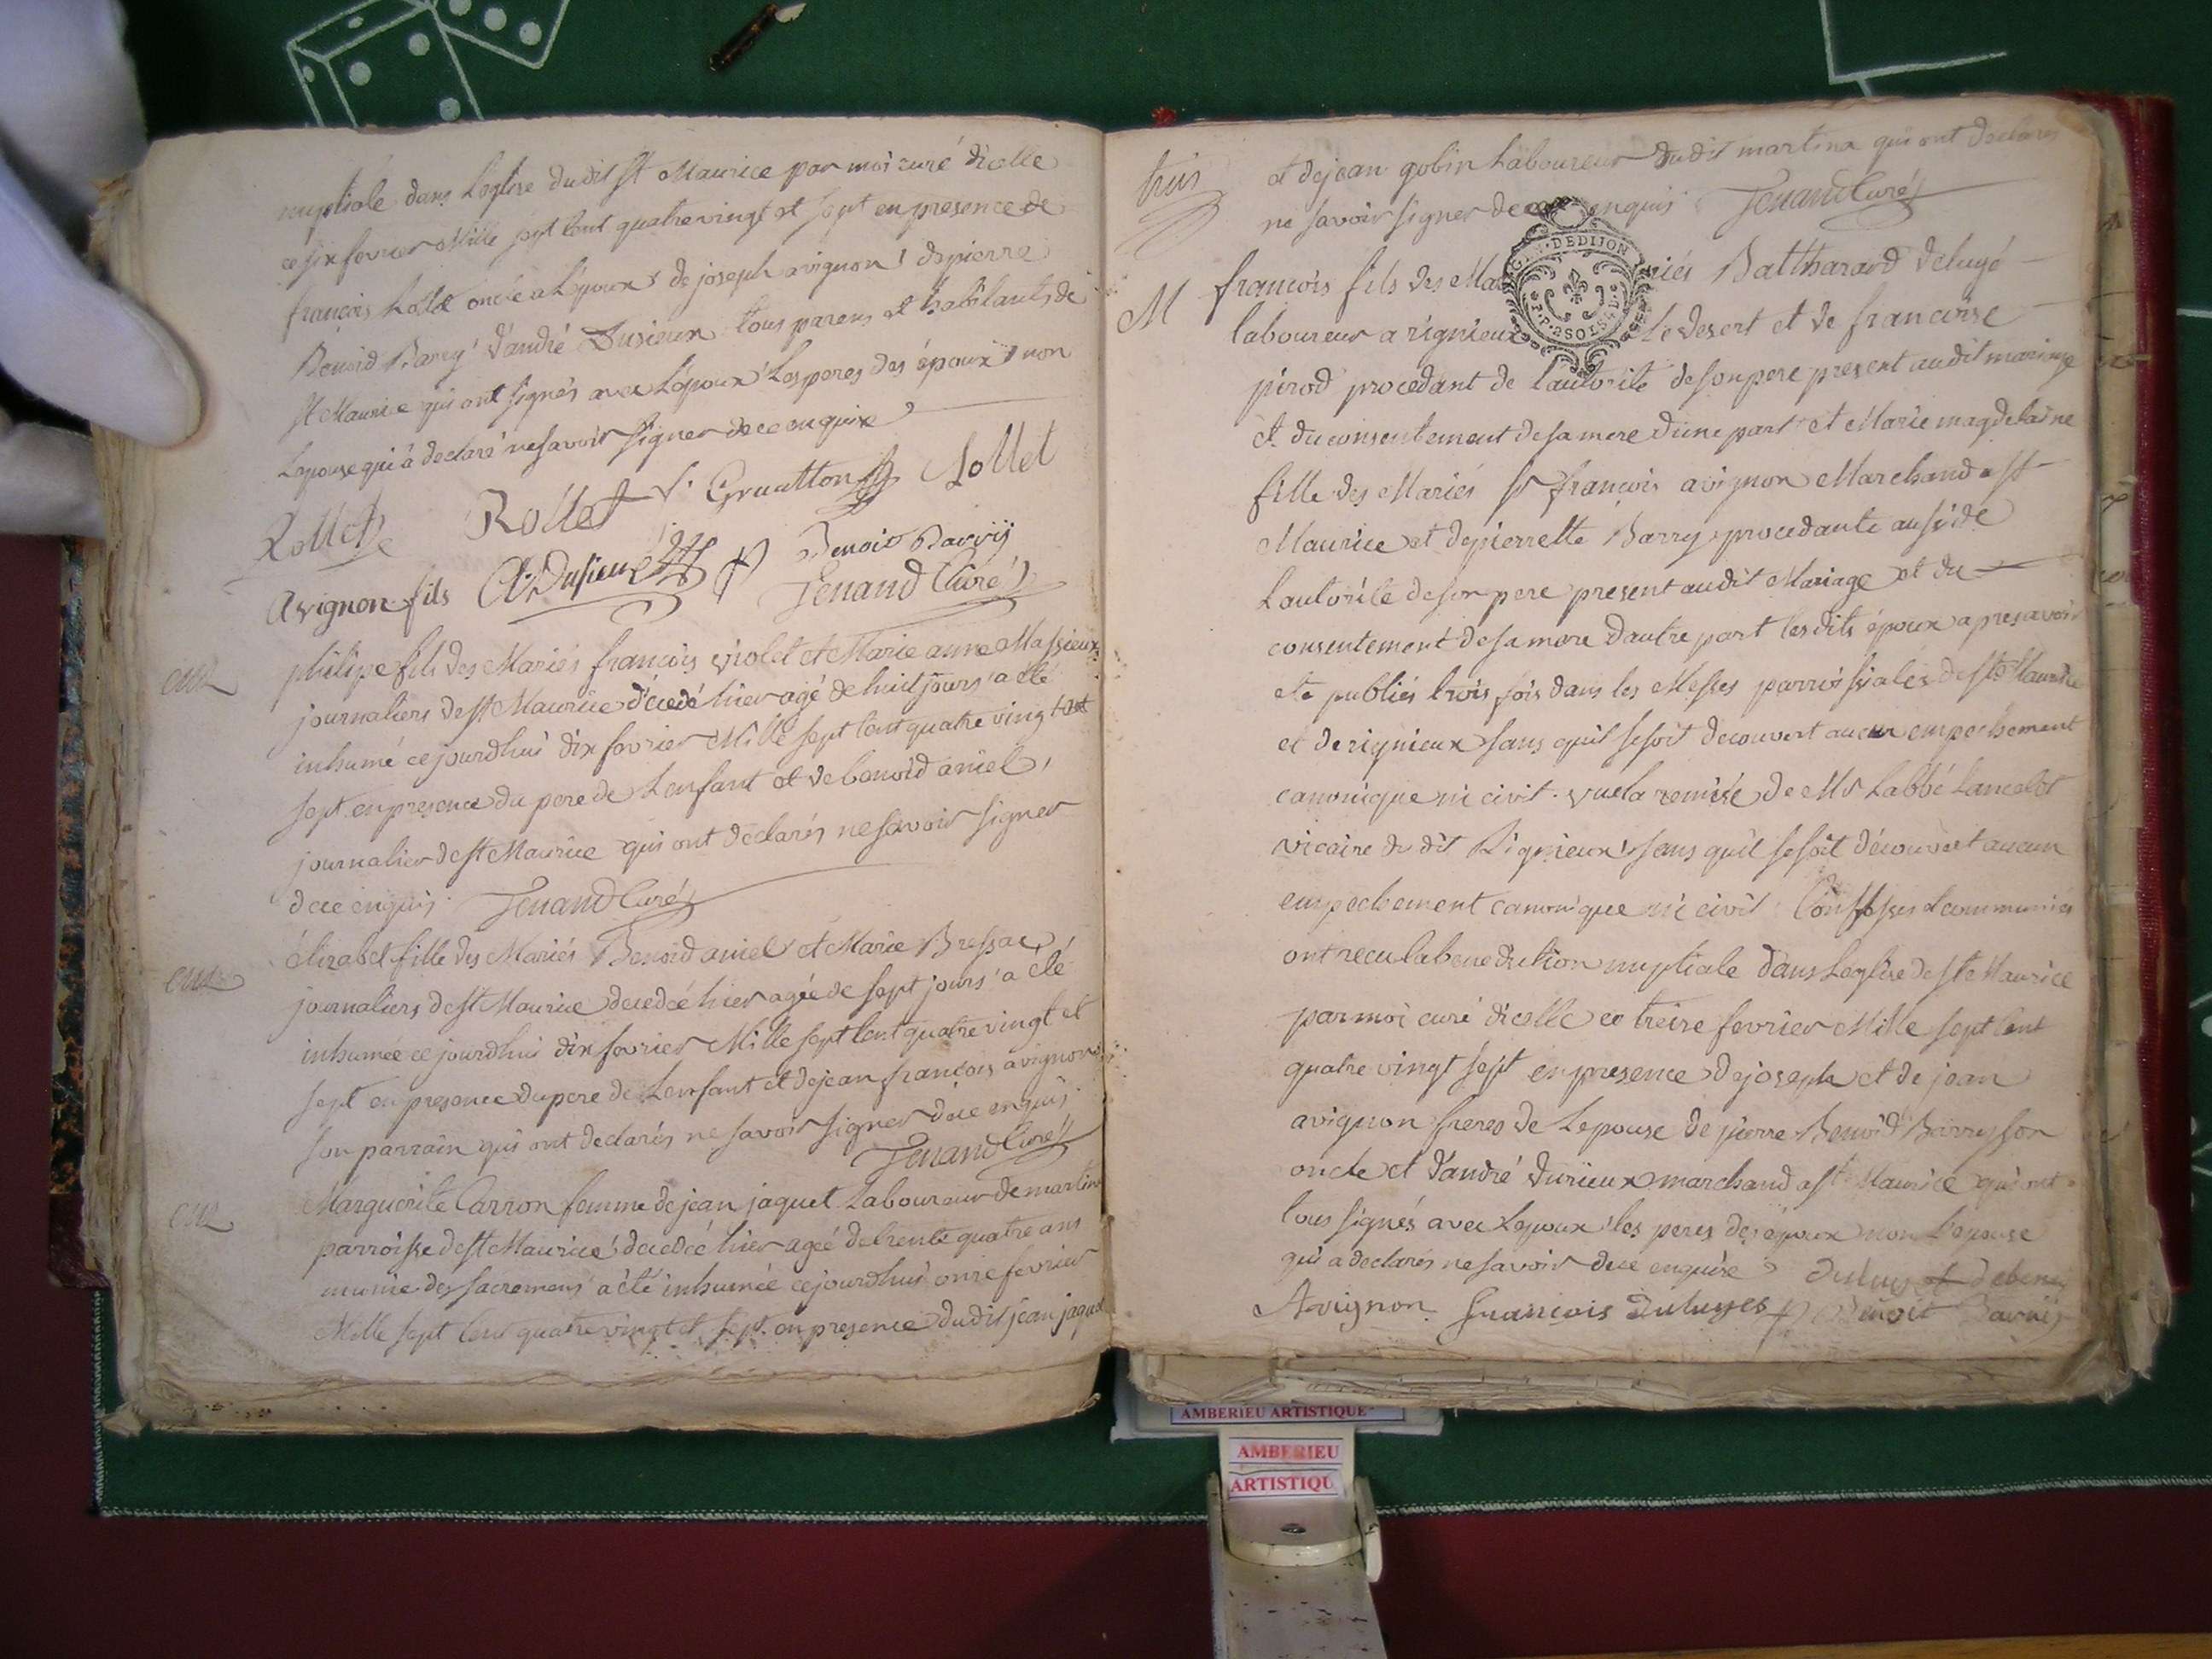 nuptiale dans Leglise dudit St Maurice par moi curé dicelle
ce six fevrier Mille sept Cent quatre vingt et sept en presence de
françois Rollet oncle a Lépoux de joseph avignon de pierre
Benoid Barry d'andré Durieux tous parens et habitants de
St Maurice qui ont signés avec Lépoux Les peres des époux non
Lepouse qui a declaré ne savoir signer de ce enquise
Rollet Rollet Gruatton Rollet
Avignon fils A. Dusieux Benoit Barry
Tenand Curé
eux
philipe fils des Mariés françois violet et Marie anne Massieux
journaliers de St Maurice décedé hier agé de huit jours a été
inhumé ce jourdhui dix fevrier Mille sept Cent quatre vingt et
sept en presence du pere de Lenfant et de benoid aniel
journalier de St Maurice qui ont declarés ne savoir signer
de ce enquis. Tenand Curé
élizabet fille des Mariés Benoid aniel et Marie Bressac
journaliers de St Maurice decedée hier agée de sept jours a été
inhumée ce jourdhui dix fevrier Mille sept Cent quatre vingt et
sept en presence du pere de Lenfant et de jean françois avignon
son parrain qui ont declarés ne savoir signer de ce enquis
Tenand Curé
Marguerite Carron femme de jean jaquet Laboureur de martina
parroisse de St Maurice decedée hier agée de trente quatre ans
munie des sacremens a été inhumée ce jourdhui onze fevrier
Mille sept Cent quatre vingt et sept en presence dudit jean jaquet
trois
et de jean gobin Laboureur dudit martina qui ont declarés
ne savoir signer de ce enquis Tenand Curé
G. DE DIJON
M
françois fils des Mariés Baltharard deluyé
laboureur a rignieux le desert et de francoise
pirod procedant de l'autorité de son pere present audit mariage
et du consentement de sa mere d'une part et Marie magdelaine
fille des Mariés Sr françois avignon Marchand a St
Maurice et de pierrette Barry procedante aussi de
L'autorité de son pere present audit Mariage et du
consentement de sa mere d'autre part les dits époux apres avoir
eté publiés trois fois dans les Messes parroissiales de St Maurice
et de rignieux sans quil se soit decouvert aucun empechement
canonique ni civil. vue la remise de Mr Labbé Lancelot
vicaire du dit Rignieux sans quil se soit découvert aucun
empechement canonique ni civil. Confessés et communiés
ont recu la benediction nuptiale dans Leglise de St Maurice
par moi curé dicelle ce treize fevrier Mille sept Cent
quatre vingt sept en presence de joseph et de jean
avignon freres de Lepouse de pierre Benoid Barry son
oncle et d'andré durieux marchand a St Maurice qui ont
tous signés avec Lepoux les peres des époux non Lepouse
qui a declarés ne savoir de ce enquise
Avignon françois Duluyes Benoit Barry
AMBERIEU ARTISTIQUE
AMBERIEU
ARTISTIQU